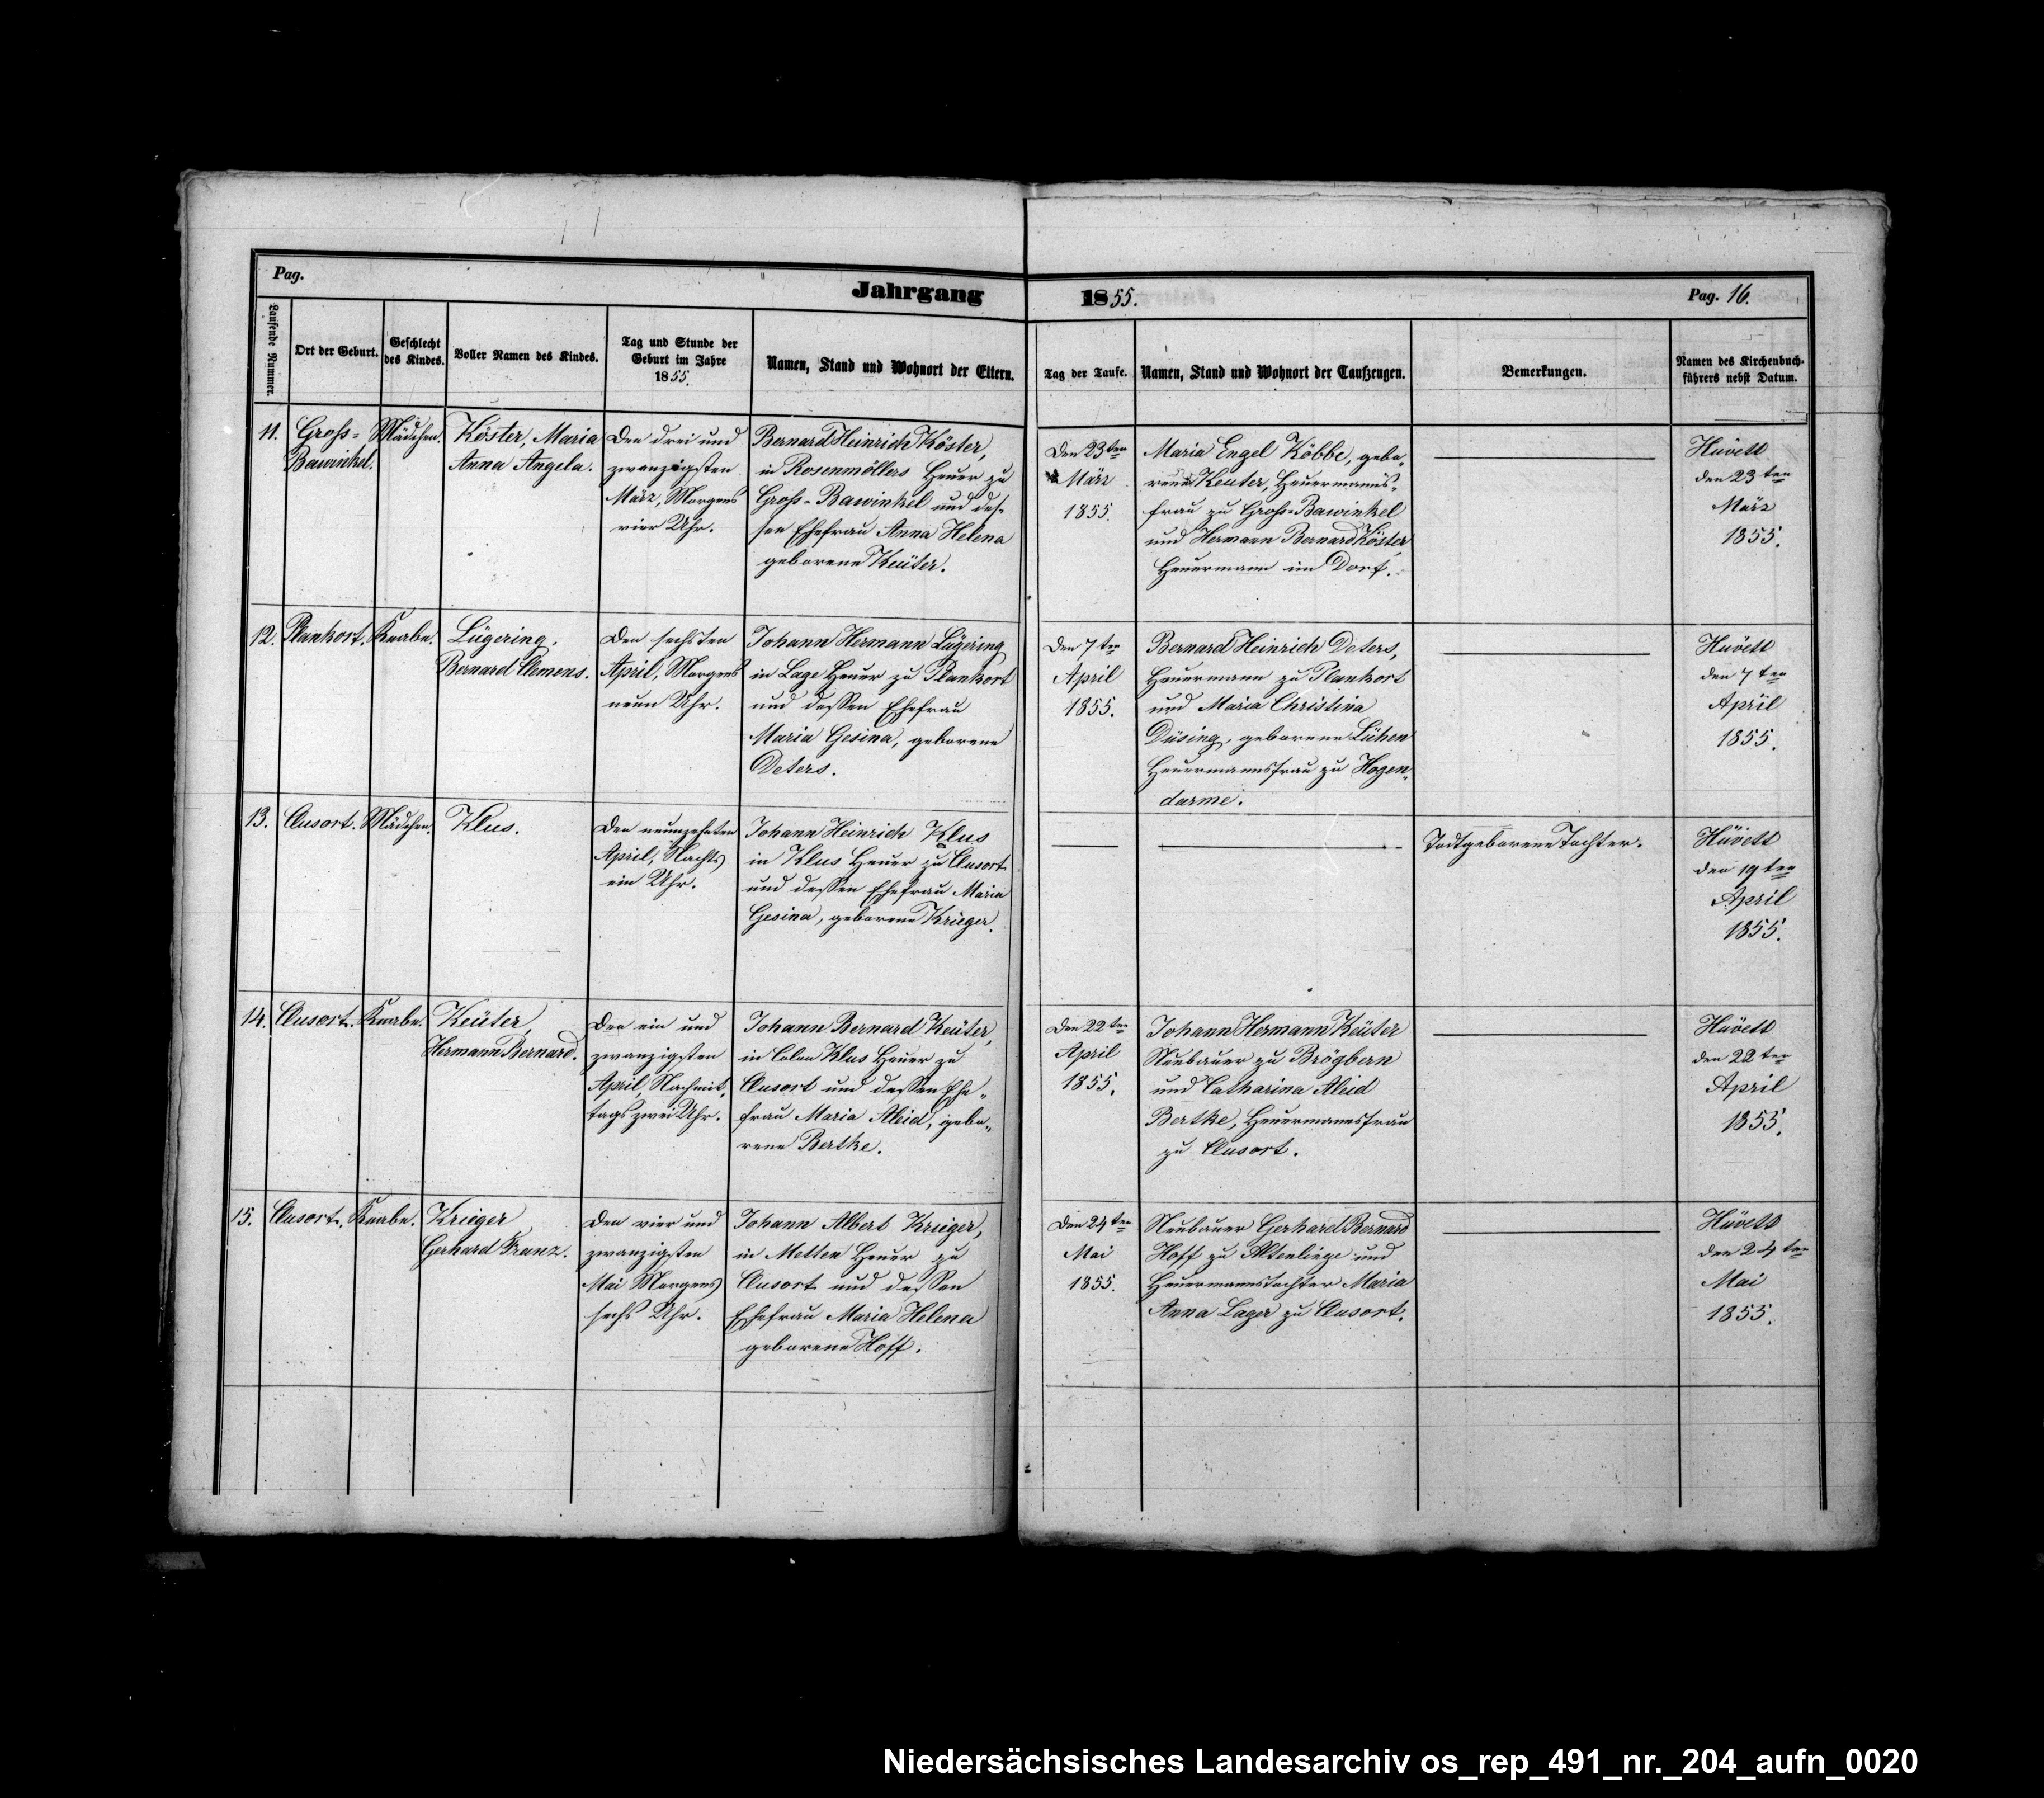 Pag.
Jahrgang
1855.
Pag. 16.
Laufende Nummer.
Ort der Geburt.
Geschlecht
des Kindes.
Voller Namen des Kindes.
Tag und Stunde der
Geburt im Jahre
1855.
Namen, Stand und Wohnort der Eltern.
Tag der Taufe.
Namen, Stand und Wohnort der Taufzeugen.
Bemerkungen.
Namen des Kirchenbuch-
führers nebst Datum.
11.
Groß-
Bawinkel.
Mädchen.
Köster, Maria
Anna Angela.
Den drei und
zwanzigsten
März, Morgens
vier Uhr.
Bernard Heinrich Köster,
in Rosenmöllers Heuer zu
Groß-Bawinkel und des-
sen Ehefrau Anna Helena
geborene Keüter.
Den 23ten
März
1855.
Maria Engel Köbbe, gebo-
rene Keuter, Heuermanns-
frau zu Groß-Bawinkel
und Hermann Bernard Köster
Heuermann im Dorf.
Hüvett
den 23ten
März
1855.
12.
Plankort.
Knabe.
Lügering,
Bernard Clemens.
Den sechsten
April, Morgens
neun Uhr.
Johann Hermann Lügering
in Lage Heuer zu Plankort
und dessen Ehefrau
Maria Gesina, geborene
Deters.
Den 7ten
April
1855.
Bernard Heinrich Deters,
Heuermann zu Plankort
und Maria Christina
Düsing, geborene Lühen
Heuermannsfrau zu Hogen-
darme.
Hüvett
den 7ten
April
1855.
13.
Clusort.
Mädchen.
Klus.
Den neunzehnten
April, Nachts
ein Uhr.
Johann Heinrich Klus
in Klus Heuer zu Clusort
und dessen Ehefrau Maria
Gesina, geborene Krieger.
Todtgeborene Tochter.
Hüvett
den 19ten
April
1855.
14.
Clusort.
Knabe.
Keüter,
Hermann Bernard.
Den ein und
zwanzigsten
April, Nachmit-
tags zwei Uhr.
Johann Bernard Keüter,
in Colon Klus Heuer zu
Clusort und dessen Ehe-
frau Maria Aleid, gebo-
rene Bertke.
Den 22ten
April
1855.
Johann Hermann Keüter
Neubauer zu Brögbern
und Catharina Aleid
Bertke, Heuermannsfrau
zu Clusort.
Hüvett
den 22ten
April
1855.
15.
Clusort.
Knabe.
Krieger,
Gerhard Franz.
Den vier und
zwanzigsten
Mai Morgens
sechs Uhr.
Johann Albert Krieger,
in Metten Heuer zu
Clusort und dessen
Ehefrau Maria Helena
geborene Hoff.
Den 24ten
Mai
1855.
Neubauer Gerhard Bernard
Hoff zu Altenlinge und
Heuermannstochter Maria
Anna Lager zu Clusort.
Hüvett
den 24ten
Mai
1855.
Niedersächsisches Landesarchiv os_rep_491_nr._204_aufn_0020